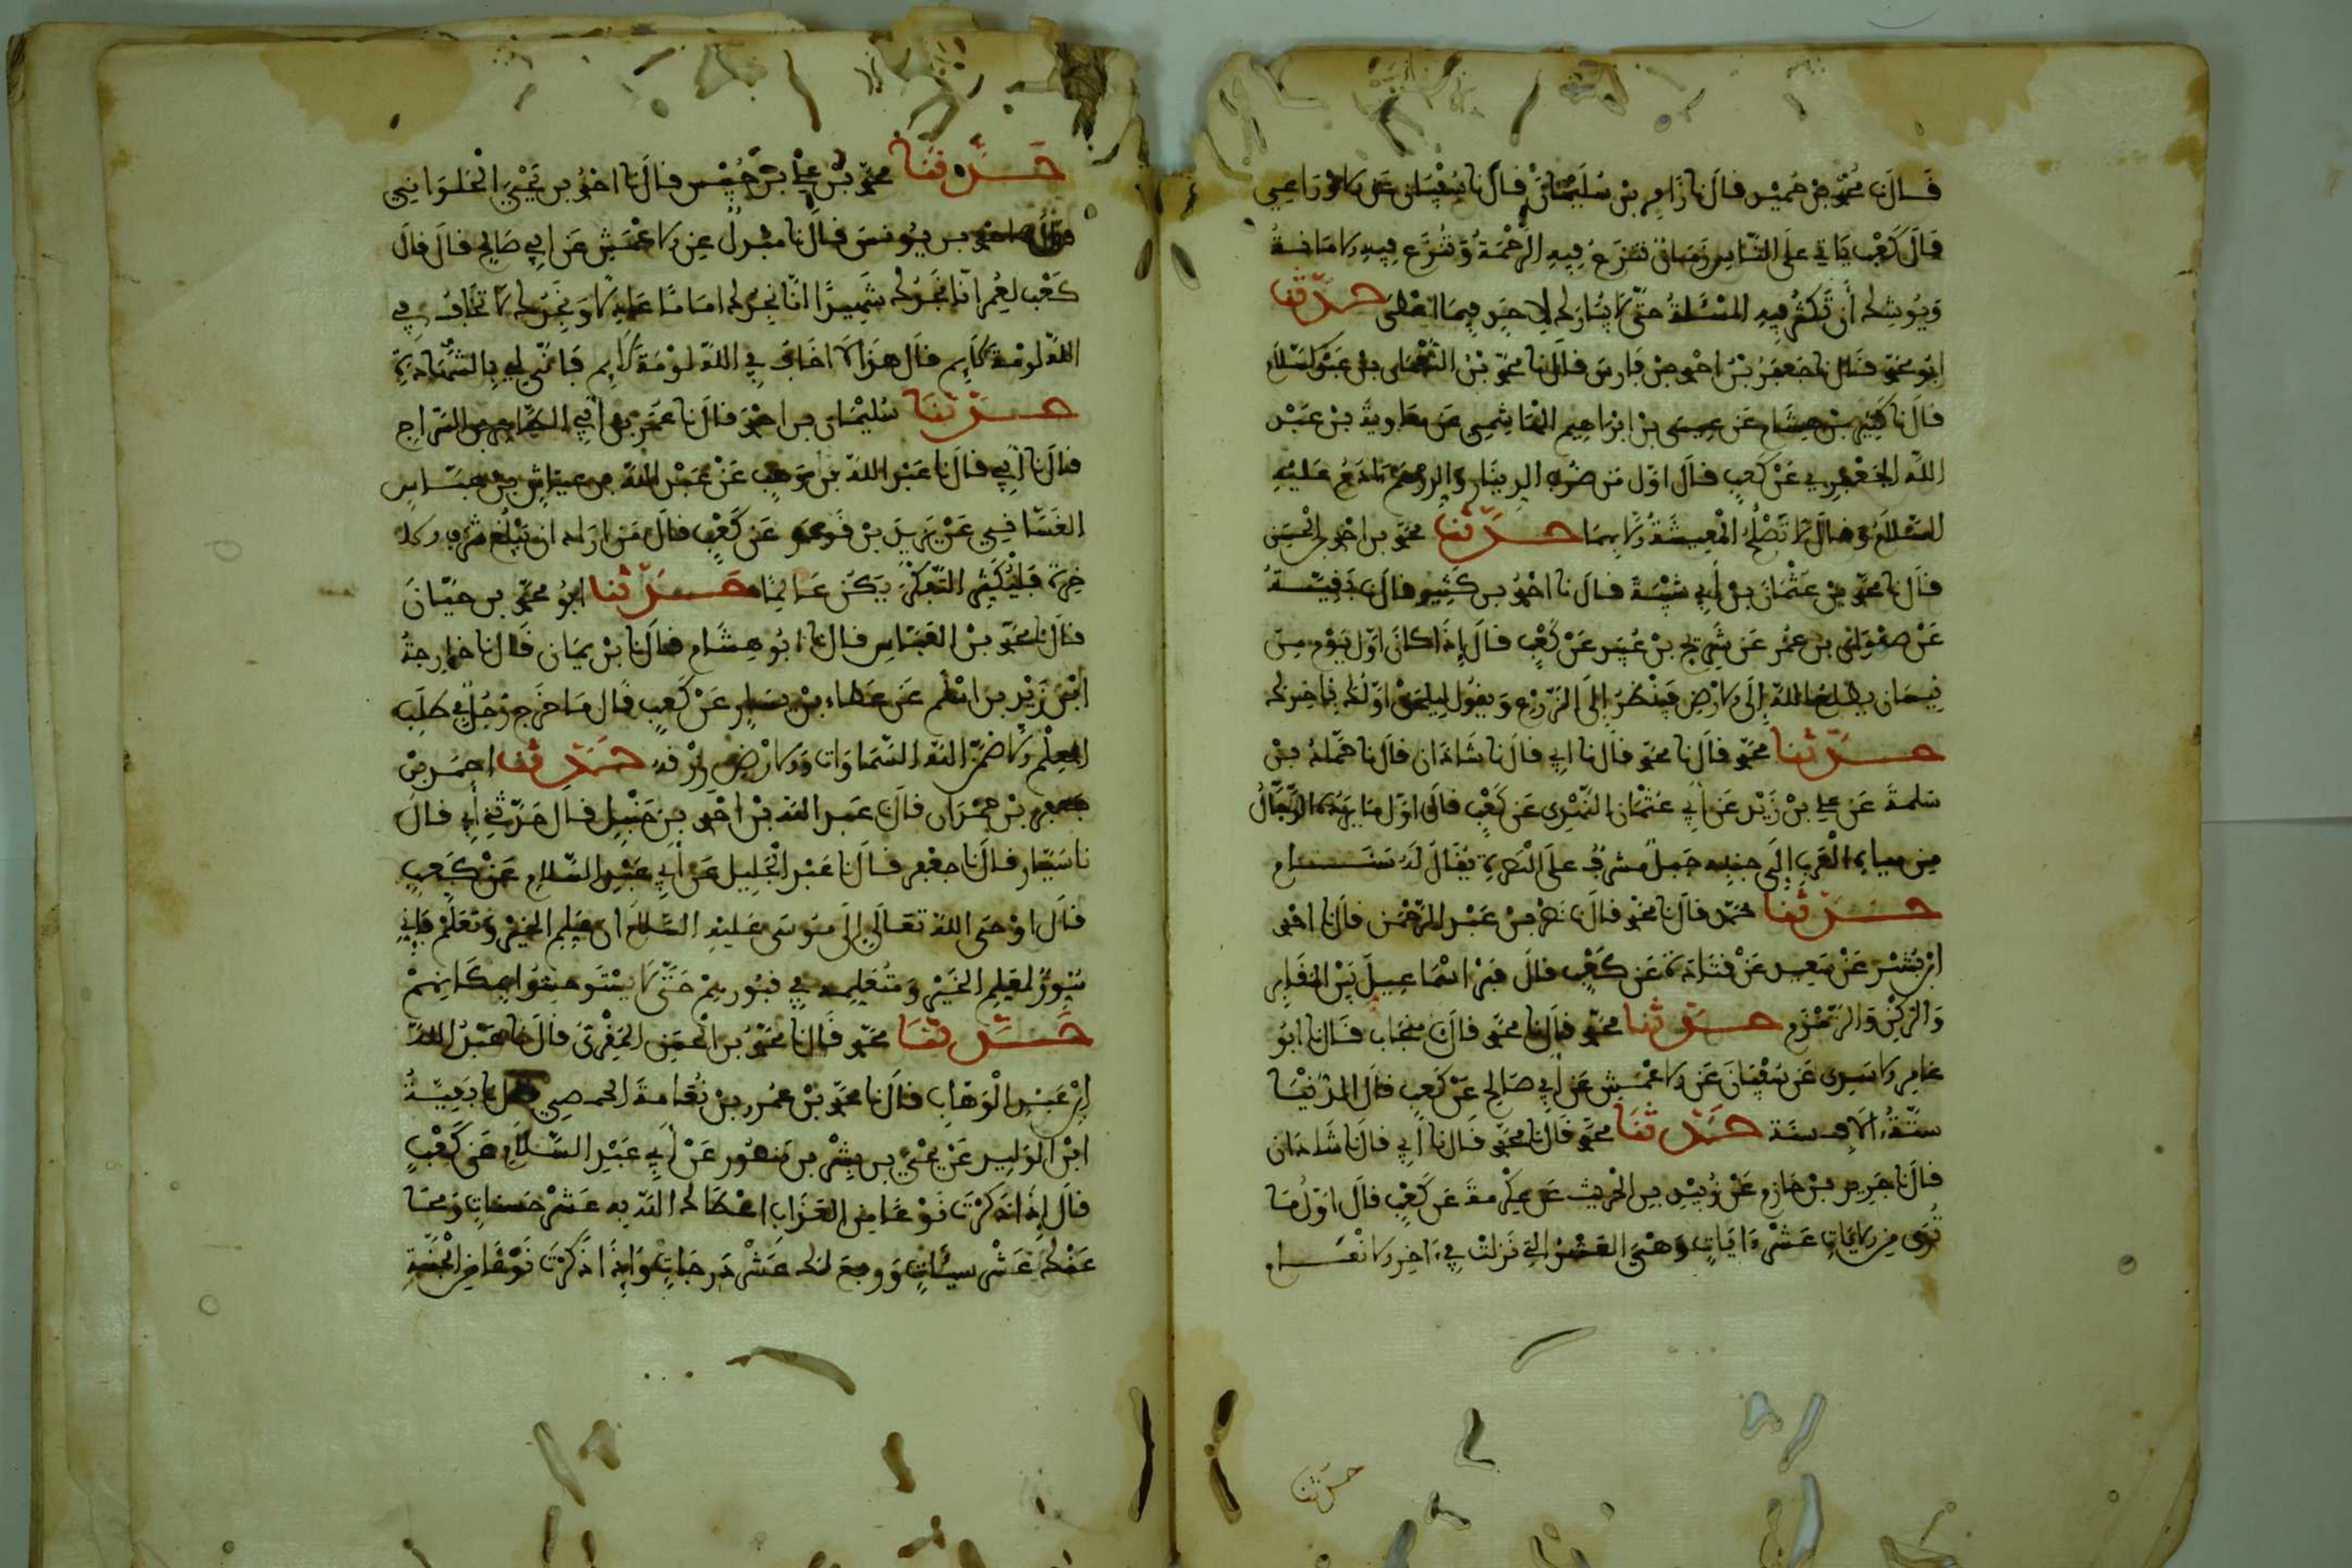 قال نا محمد بن حميد قال نا زافر بن سليمان قال نا سفيان عن الاوزاعي
قال كعب ياتي على الناس زمان تنزع فيه الرحمة وتنزع فيه الامانة
ويوشك أن تكثر فيه المسئلة حتى لا يبارك لاحد فيما اعطى حدثنا
ابو محمد قال نا جعفر بن احمد بن فارس قال نا محمد بن النعمان بن عبد السلام
قال نا كثير بن هشام عن عيسى بن ابراهيم الهاشمي عن معاوية بن عبد
الله الجعفري عن كعب قال اول من ضرب الدينار والدرهم ءادم عليه
السلام وقال لا تصلح المعيشة الا بهما حدثنا محمد بن احمد بن الحسن
قال نا محمد بن عثمان بن أبي شيبة قال نا احمد بن كثير قال نا بقية
عن صفوان بن عمر عن شريح بن عبيد عن كعب قال إذا كان اول يوم من
نيسان يطلع الله إلى الارض فينظر إلى الزرع ويقول ليلحق اولك بآخرك
حدثنا محمد قال نا محمد قال نا ابي قال نا شاذان قال نا حماد بن
سلمة عن علي بن زيد عن ابي عثمان النهدي عن كعب قال اول ما يرده الدجال
من مياه العرب إلى جنبه جبل مشرف على البصرة يقال له سنام
حدثنا محمد قال نا محمد قال نا نصر بن عبد الرحمن قال نا احمد
ابن بشر عن سعيد عن قتادة عن كعب قال قبر اسماعيل بين المقام
والركن والزمزم حدثنا محمد قال نا محمد قال نا منجاب قال نا ابو
عامر الاسدي عن سفيان عن الاعمش عن أبي صالح عن كعب قال الدنيا
ستة ءالاف سنة حدثنا محمد قال نا محمد قال نا أبي قال نا شاذان
قال نا جرير بن حازم عن زبيد بن الحريث عن عكرمة عن كعب قال اول ما
نزل من الايات عشر ءايات وهي العشر التي نزلت في ءاخر الانعام
حدثنا
حدثنا محمد بن علي بن حبيش قال نا احمد بن يحيى الحلواني
قال نا احمد بن يونس قال نا مندل عن الاعمش عن ابي صالح قال قال
كعب لعمر انا نجدك شهيدا انا نجدك اماما عادلا ونجدك لا تخاف في
الله لومة لايم قال هذا لا اخاف في الله لومة لايم فانى لي بالشهادة
حدثنا سليمان بن احمد قال نا عمر بن ابي الطاهر بن السراج
قال نا أبي قال نا عبد الله بن وهب عن عبد الله بن عياش بن عباس
الغسانسي عن يزيد بن قوذر عن كعب قال من اراد ان يبلغ شرف
خرة فليكثر التفكر يكن عالما حدثنا ابو محمد بن حيان
قال نا محمد بن العباس قال نا ابو هشام قال نا بن يمان قال نا خارجة
ابن زيد بن اسلم عن عطاء بن يسار عن كعب قال ما خرج رجل في طلب
العلم الا ضمن الله السماوات والارض رزقه حدثنا احمد بن
جعفر بن حمدان قال نا عبد الله بن احمد بن حنبل قال حدثني أبي قال
نا سيار قال نا جعفر قال نا عبد الجليل عن أبي عبد السلام عن كعب
قال اوحى الله تعالى إلى موسى عليه السلام ان علم الخير وتعلم فإني
منور لمعلم الخير ومتعلمه في قبورهم حتى لا يستوحشوا بمكانهم
حدثنا محمد قال نا محمد بن الحسن اليقرتي قال نا عبد الله
ابن عبد الوهاب قال نا محمد بن عمرو بن ثمامة الحمصي قال نا بقية
ابن الوليد عن يحيى بن بشر بن منصور عن أبي عبد السلام عن كعب
قال إذا ذكرت نوعا من العذاب اعطاك الله به عشر حسنات ومحا
عنك عشر سيئات ورفع لك عشر درجات وإذا ذكرت نوعا من الجنة